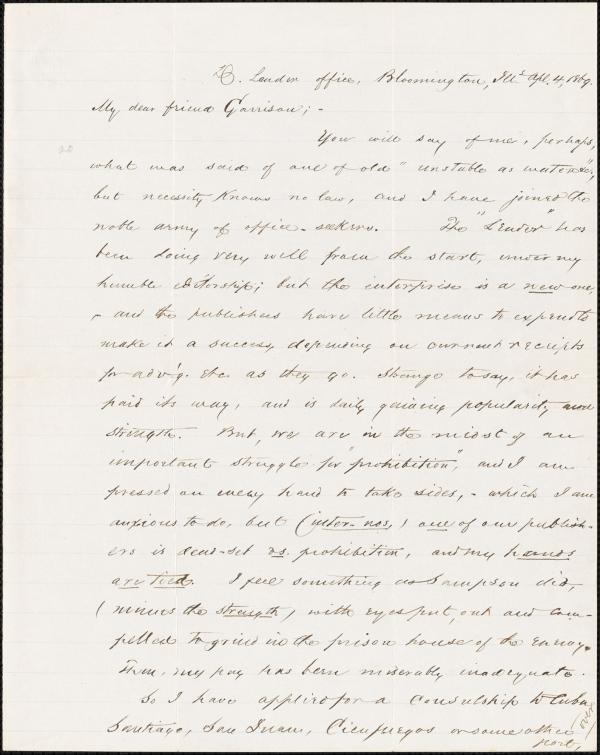 Leader office, Bloomington, Ills Apl. 4, 1869.
My dear friend Garrison; -
You will say of me, perhaps,
what was said of one of old "unstable as water" &c,
but necessity knows no law, and I have joined the
noble army of office-seekers. The "Leader" has
been doing very well from the start, under my
humble editorship; but the enterprise is a new one,
- and the publishers have little means to expend to
make it a success, depending on current receipts
for adv'g. etc as they go. Strange to say, it has
paid its way, and is daily gaining popularity and
strength. But, we are in the midst of an
important struggle for "prohibition", and I am
pressed on every hand to take sides, - which I am
anxious to do, but (inter-nos,) one of our publish-
ers is dead-set vs. prohibition, and my hands
are tied. I feel something as Sampson did,
(minus the strength) with eyes put out and com-
pelled to grind in the prison house of the enemy.
Then, my pay has been miserably inadequate.
So I have applied for a Consulship to Cuba,
Santiago, San Juan, Cienfuegos or some other
port,
over